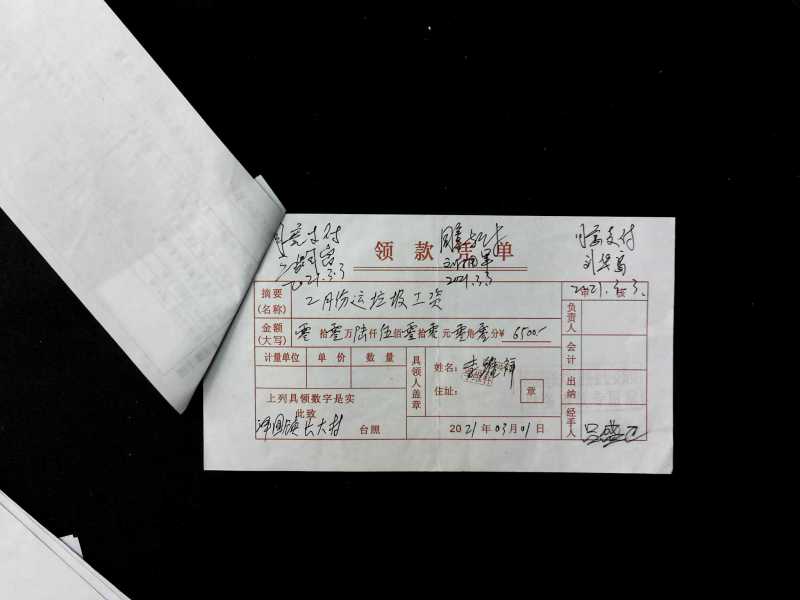 同意支付
2021.3.3
同意支付
2021.3.3
同意支付
2021.3.3.
领款凭单
审核
摘要(名称) 2月份运垃圾工资
金额(大写) 零拾零万陆仟伍佰零拾零元零角零分¥ 6500.-
计量单位 单价 数量
具领人盖章
姓名:
住址: 章
上列具领数字是实
此致
长大村 台照
2021年03月01日
负责人
会计
出纳
经手人